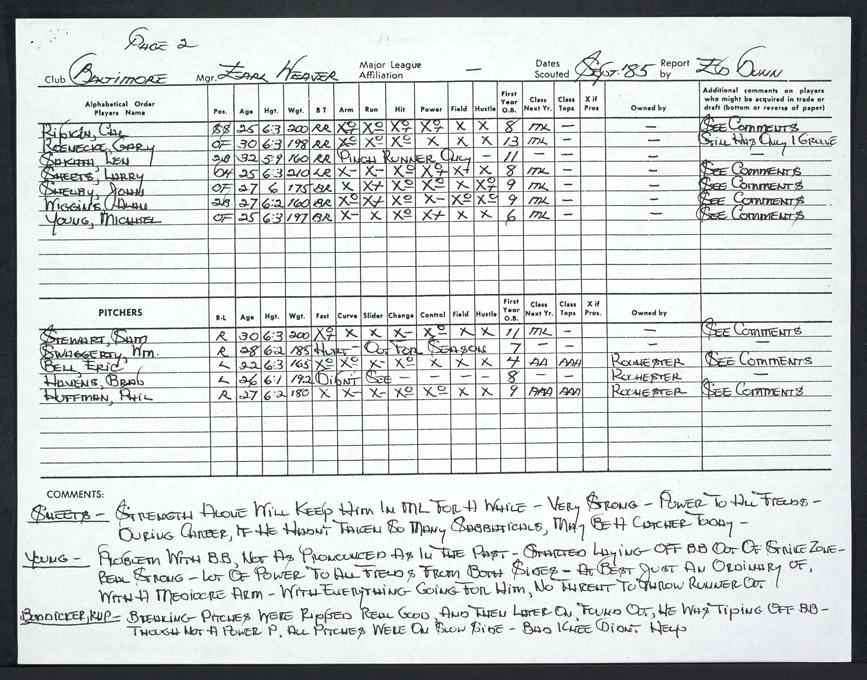 PAGE 2
Club BALTIMORE Mgr. EARL WEAVER Major League Affiliation — Dates Scouted SEPT. '85 Report by ED DUNN
Alphabetical Order Players Name Pos. Age Hgt. Wgt. B T Arm Run Hit Power Field Hustle First Year O.B. Class Next Yr. Class Tops X if Pros Owned by Additional comments on players who might be acquired in trade or draft (bottom or reverse of paper)
RIPKIN, CAL SS 25 6:3 200 RR X X 8 ML — — SEE COMMENTS
ROENECKE, GARY OF 30 6:3 198 RR X X 13 ML — — STILL HAS ONLY 1 GLOVE
SAKATA, LEN 2B 32 5:9 160 RR PINCH RUNNER ONLY — 11 — — — —
SHEETS, LARRY DH 25 6:3 210 LR X- X- X 8 ML — — SEE COMMENTS
SHELBY, JOHN OF 27 6 175 BR X X+ X 9 ML — — SEE COMMENTS
WIGGINS, ALAN 2B 27 6:2 160 BR X+ X- 9 ML — — SEE COMMENTS
YOUNG, MICHAEL OF 25 6:3 197 BR X- X X+ X X 6 ML — — SEE COMMENTS
PITCHERS R-L Age Hgt. Wgt. Fast Curve Slider Change Control Field Hustle First Year O.B. Class Next Yr. Class Tops X if Pros. Owned by
STEWART, SAM R 30 6:3 200 X X X- X X 11 ML — — SEE COMMENTS
SWAGGERTY, WM. R 28 6:2 185 HURT - OUT FOR SEASON 7 — — — —
BELL, ERIC L 22 6:3 165 X X 4 AA AAA ROCHESTER SEE COMMENTS
HAVENS, BRAD L 26 6:1 192 DIDN'T SEE — — — — 8 — — ROCHESTER
HUFFMAN, PHIL R 27 6:2 180 X X- X- X X 9 AAA AAA ROCHESTER SEE COMMENTS
COMMENTS:
SHEETS - STRENGTH ALONE WILL KEEP HIM IN ML FOR A WHILE - VERY STRONG - POWER TO ALL FIELDS -
DURING CAREER, IF HE HADN'T TAKEN SO MANY SABBATICALS, MAY BE A CATCHER TODAY -
YOUNG - PROBLEM WITH B.B, NOT AS PRONOUNCED AS IN THE PAST - STARTED LAYING OFF BB OUT OF STRIKE ZONE -
REAL STRONG - LOT OF POWER TO ALL FIELDS FROM BOTH SIDES - AT BEST JUST AN ORDINARY OF,
WITH A MEDIOCRE ARM - WITH EVERYTHING GOING FOR HIM, NO THREAT TO THROW RUNNER OUT
BODDICKER, RHP - BREAKING PITCHES WERE RIPPED REAL GOOD, AND THEN LATER ON, FOUND OUT, HE WAS TIPING OFF BB -
THOUGH NOT A POWER P, ALL PITCHES WERE ON SLOW SIDE - BAD KNEE DIDN'T HELP